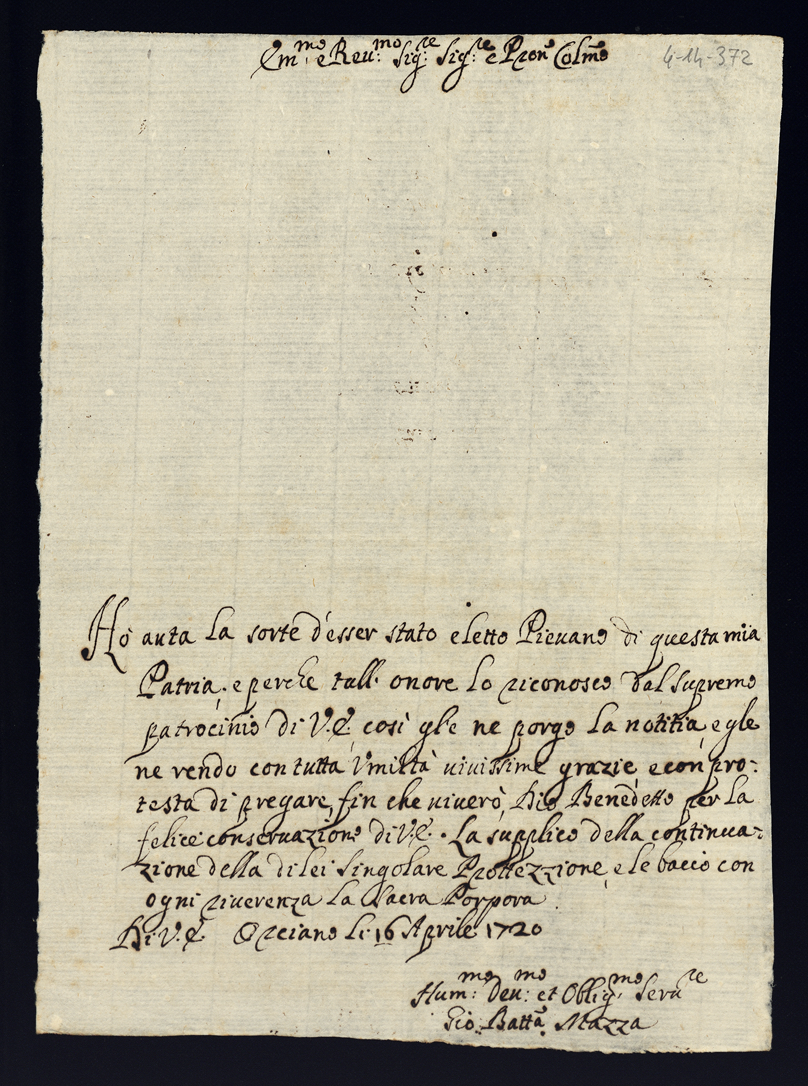 Em:mo e Reu:mo Sig:re Sig:re e Pron Colmo
4-14-372
Hò auta la sorte d'esser stato eletto Pieuano di questa mia
Patria, e perche tall' onore lo riconosco dal supremo
patrocinio di V.E., così gl'e ne porgo la notitia, e gle
ne rendo con tutta Vmiltà uiuissime grazie, e con pro:
testa di pregare, fin che uiuerò, Dio Benedetto per la
felice conseruazione di V.E. La supplico della continua-
zione della di lei singolare Prottezzione, e le bacio con
ogni riuerenza la Sacra Porpora.
Di V.E. Orciano li 16 Aprile 1720
Hum:mo Deu:mo et Oblig:mo Seru:re
Gio: Batta Mazza